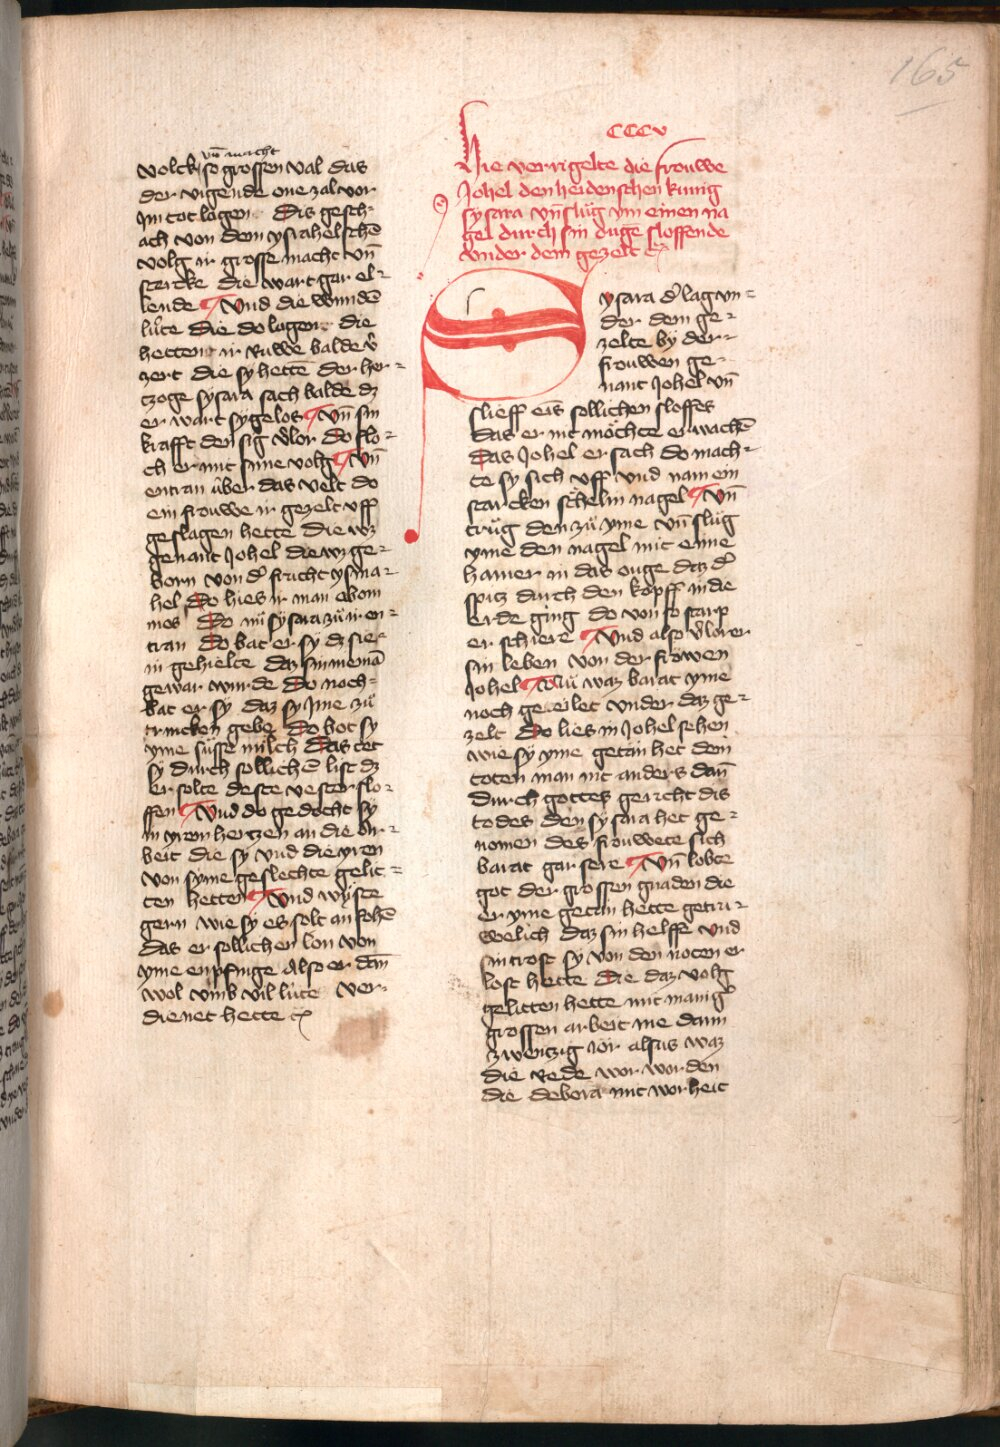 165
vn̄ macht
volck so grossen val das
der vigende one zal vor
Im tot logen Dis gesch-
ach von dem ysrahelschē
volg ir grosse macht vn̄
starcke die wart gar el-
lende Vnd die wundē
lúte die do logen die
hetten ir Ruwe balde v̄
zert die sy hettē der her-
tzoge sysara sach balde dz
er wart sygelos Vn̄ sin
krafft den sig v̄lor Do flo-
ch er mit sime volg Vn̄
entran über das velt do
ein frouwe ir gezelt vff
geslagen hette die wz
genant Johel die wz ge-
born von d' frucht ysma-
hel Do hies ir man ebom
mes Do nů sysara zů ir en-
tran Do bat er sy dz sie
in gehielte daz sin niemā
gewar wurde Do noch-
bat er sy daz sy Jme zů
trincken gebe Do bot sy
yme sůsse milch Das tet
sy durch sollichē list dz
er solte deste vester slo-
ffen Vnd do gedocht sy
in yrem hertzen an die or-
beit die sy vnd die yren
von syme geslechte gelit-
ten hetten Vnd wyste
gern wie sy es solt an fohē
das er sollichen lon von
yme enpfinge Also er dān
wol vmb vil lúte ver-
dienet hette
CCCV
Hie verrigelte die frouwe
Johel den heidenschen kúnig
sysara vn̄ slůg ym einen na
gel durch sin ouge sloffende
vnder dem gezelt
Sysara d' lag vn-
der dem ge-
zelte by der
frouwen ge-
nant Johel vn̄
slieff eīs sollichen sloffes
das er nit möchte erwachē
Das Johel er sach do mach-
te sy sich vff vnd nam ein
starcken schelm nagel Vn̄
trůg den zů yme vn̄ slůg
yme den nagel mit eime
hamer in das ouge daz d'
spitz durch den kopff in de
erde ging do von so starp
er schiere Vnd also v̄lorer
sin leben von der frowen
Johel Nů waz barat yme
noch geeilet vnder daz ge-
zelt Do lies in Johel sehen
wie sy yme getan het dem
toten man nit anders dan̄
durch gottes gericht dis
todes den sysara het ge-
nomen des frouwete sich
barat gar sere Vn̄ lobte
got der grossen gnaden die
er yme getan hette getru-
welich daz sin helffe vnd
sin trost sy von den noten er
lost hette Die daz volg
gelitten hette mit manig'
grossen arbeit me dann
zwentzig Jor alsus waz
die rede wor worden
die debora mit worheit